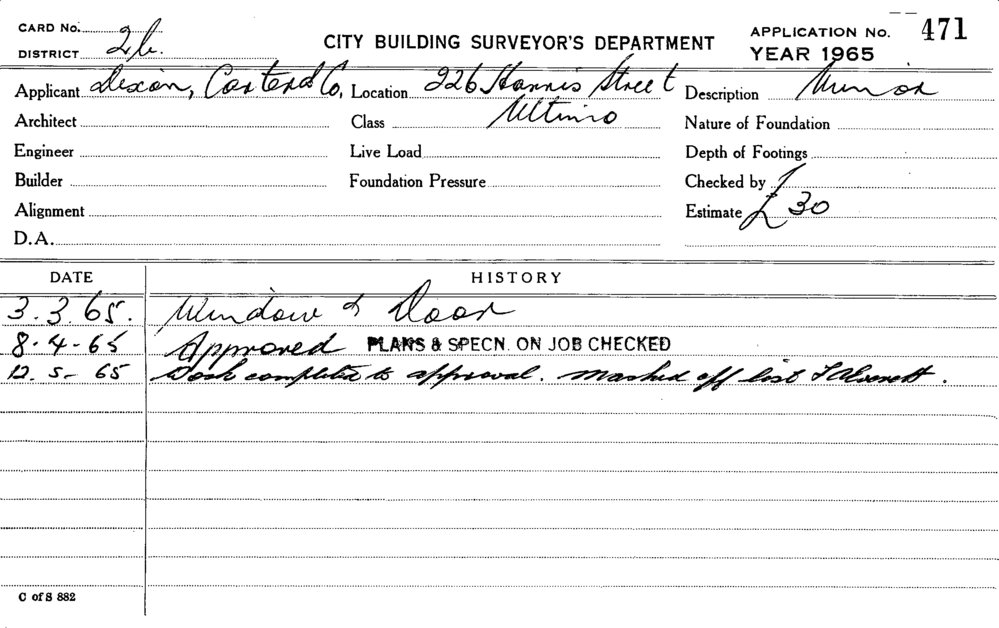 CARD No.
DISTRICT 2b.
CITY BUILDING SURVEYOR'S DEPARTMENT
APPLICATION No. 471
YEAR 1965
Applicant Dixon, Carter & Co, Location 226 Harris Street Description Minor
Architect Class Ultimo Nature of Foundation
Engineer Live Load Depth of Footings
Builder Foundation Pressure Checked by
Alignment Estimate £30
D.A.
DATE HISTORY
3.3.65. Window & Door
8-4-65 Approved PLANS & SPECN. ON JOB CHECKED
12.5-65 Work completed to approval. Marked off list
C of S 882